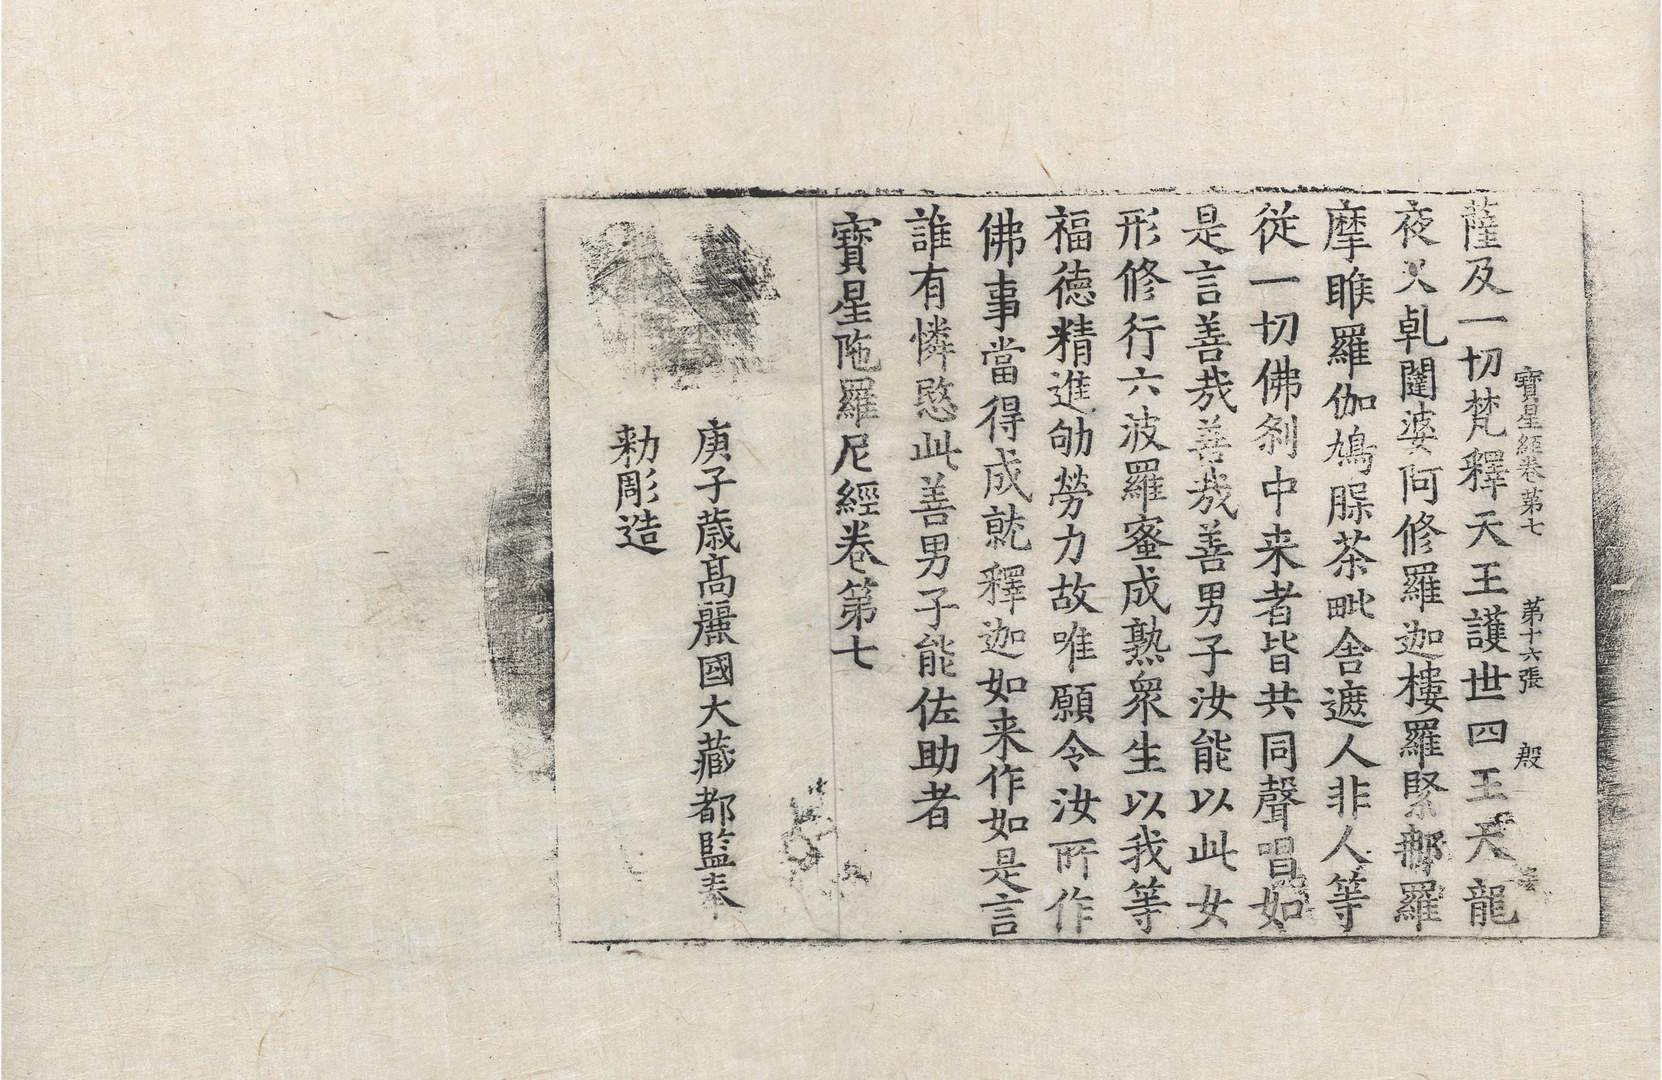 寶星經卷第七 第十六張 殷
薩及一切梵釋天王護世四王天龍
夜叉乹闥婆阿修羅迦樓羅緊那羅
摩睺羅伽鳩槃茶毗舍遮人非人等
從一切佛刹中来者皆共同聲唱如
是言善㢤善㢤善男子汝能以此女
形修行六波羅蜜成熟衆生以我等
福德精進劬勞力故唯願令汝所作
佛事當得成就釋迦如来作如是言
誰有憐愍此善男子能佐助者
寶星陁羅尼經卷第七
庚子歲高麗國大藏都監奉
勑彫造